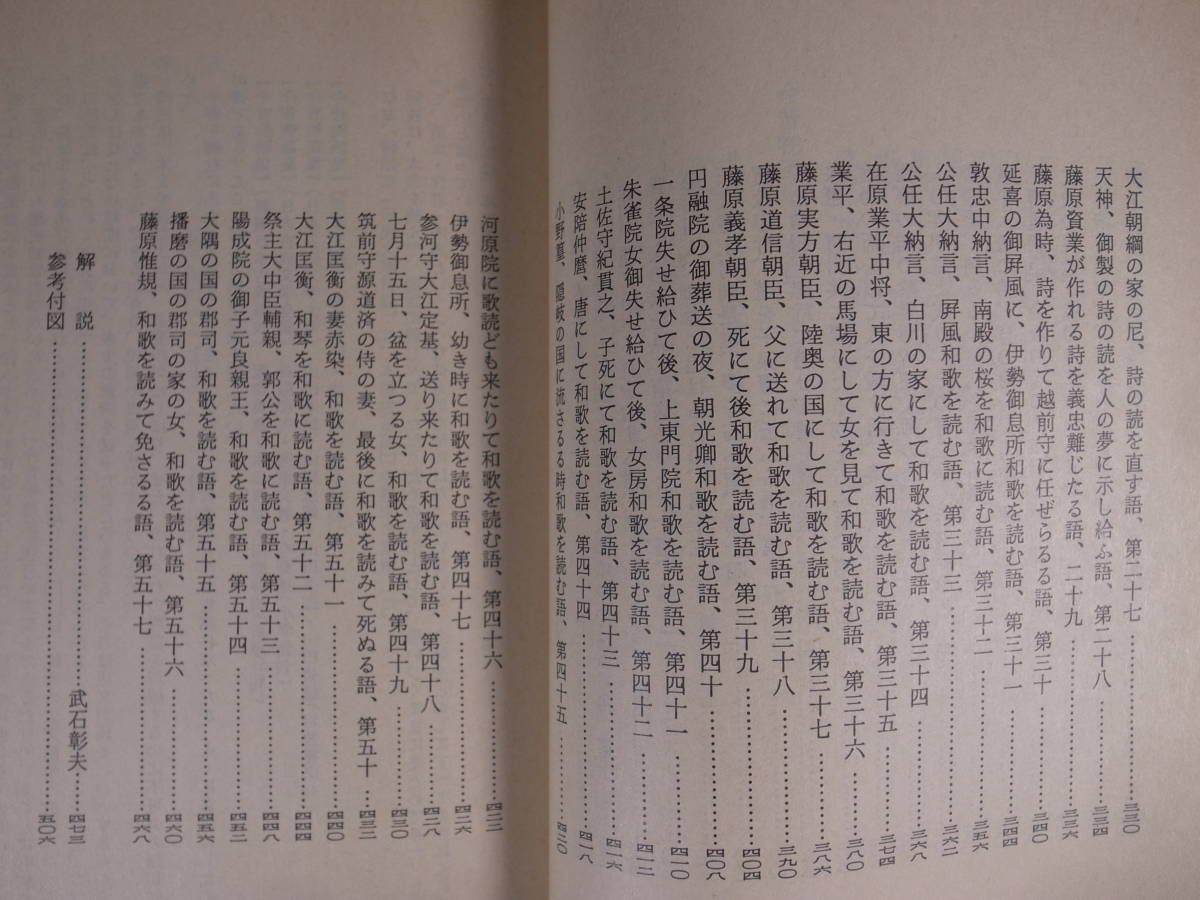 大江朝綱の家の尼、詩の読を直す語、第二十七…………三三〇
天神、御製の詩の読を人の夢に示し給ふ語、第二十八…………三三四
藤原資業が作れる詩を義忠難じたる語、二十九…………三三六
藤原為時、詩を作りて越前守に任ぜらるる語、第三十…………三四〇
延喜の御屏風に、伊勢御息所和歌を読む語、第三十一…………三四四
敦忠中納言、南殿の桜を和歌に読む語、第三十二…………三五六
公任大納言、屏風和歌を読む語、第三十三…………三六二
公任大納言、白川の家にして和歌を読む語、第三十四…………三六八
在原業平中将、東の方に行きて和歌を読む語、第三十五…………三七四
業平、右近の馬場にして女を見て和歌を読む語、第三十六…………三八〇
藤原実方朝臣、陸奥の国にして和歌を読む語、第三十七…………三八六
藤原道信朝臣、父に送れて和歌を読む語、第三十八…………三九〇
藤原義孝朝臣、死にて後和歌を読む語、第三十九…………四〇四
円融院の御葬送の夜、朝光卿和歌を読む語、第四十…………四〇八
一条院失せ給ひて後、上東門院和歌を読む語、第四十一…………四一〇
朱雀院女御失せ給ひて後、女房和歌を読む語、第四十二…………四一二
土佐守紀貫之、子死にて和歌を読む語、第四十三…………四一六
安陪仲麿、唐にして和歌を読む語、第四十四…………四一八
小野篁、隠岐の国に流さるる時和歌を読む語、第四十五…………四二〇
河原院に歌読ども来たりて和歌を読む語、第四十六…………四二二
伊勢御息所、幼き時に和歌を読む語、第四十七…………四二六
参河守大江定基、送り来たりて和歌を読む語、第四十八…………四二八
七月十五日、盆を立つる女、和歌を読む語、第四十九…………四三〇
筑前守源道済の侍の妻、最後に和歌を読みて死ぬる語、第五十…四三二
大江匡衡の妻赤染、和歌を読む語、第五十一…………四四〇
大江匡衡、和琴を和歌に読む語、第五十二…………四四四
祭主大中臣輔親、郭公を和歌に読む語、第五十三…………四四八
陽成院の御子元良親王、和歌を読む語、第五十四…………四五二
大隅の国の郡司、和歌を読む語、第五十五…………四五六
播磨の国の郡司の家の女、和歌を読む語、第五十六…………四六〇
藤原惟規、和歌を読みて免さるる語、第五十七…………四六八
解説…………武石彰夫…四七三
参考付図…………五〇六